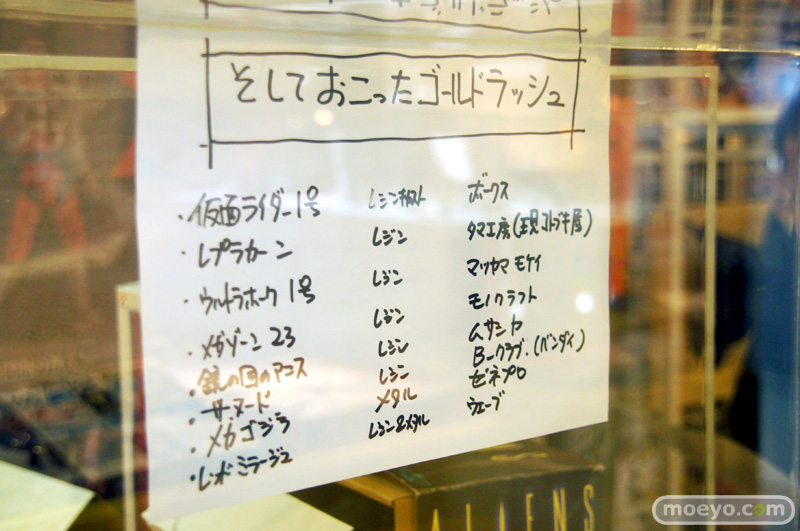 そしておこったゴールドラッシュ
・仮面ライダー1号 レジンキャスト ボークス
・レプラカーン レジン タマ工房(現コトブキ屋)
・ウルトラホーク1号 レジン マツヤマモケイ
・メガゾーン23 レジン モノクラフト
・鏡の国のアニス レジン ムサシヤ
・ザ・ヌード レジン B-クラブ.(バンダイ)
・メカゴジラ メタル ゼネプロ
・レッドミラージュ レジン&メタル ウェーブ
ALIENS
moeyo.com